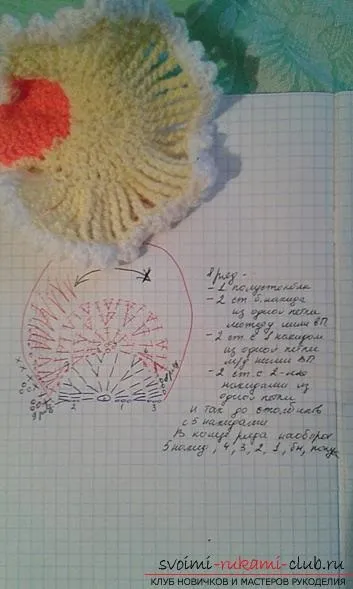 8 ряд -
- 1 полустолбик
- 2 ст. б. накида
из одной петли
между ними ВП
- 2 ст. с 1 накидом
из одной петли
м/д ними ВП.
- 2 ст. с 2-мя
накидами из
одной петли
и так до столбиков
с 5 накидами
В конце ряда наоборот
5 накид, 4, 3, 2, 1, бн,
2 1 3
svoimi-rukami-club.ru
КЛУБ НОВИЧКОВ И МАСТЕРОВ РУКОДЕЛИЯ